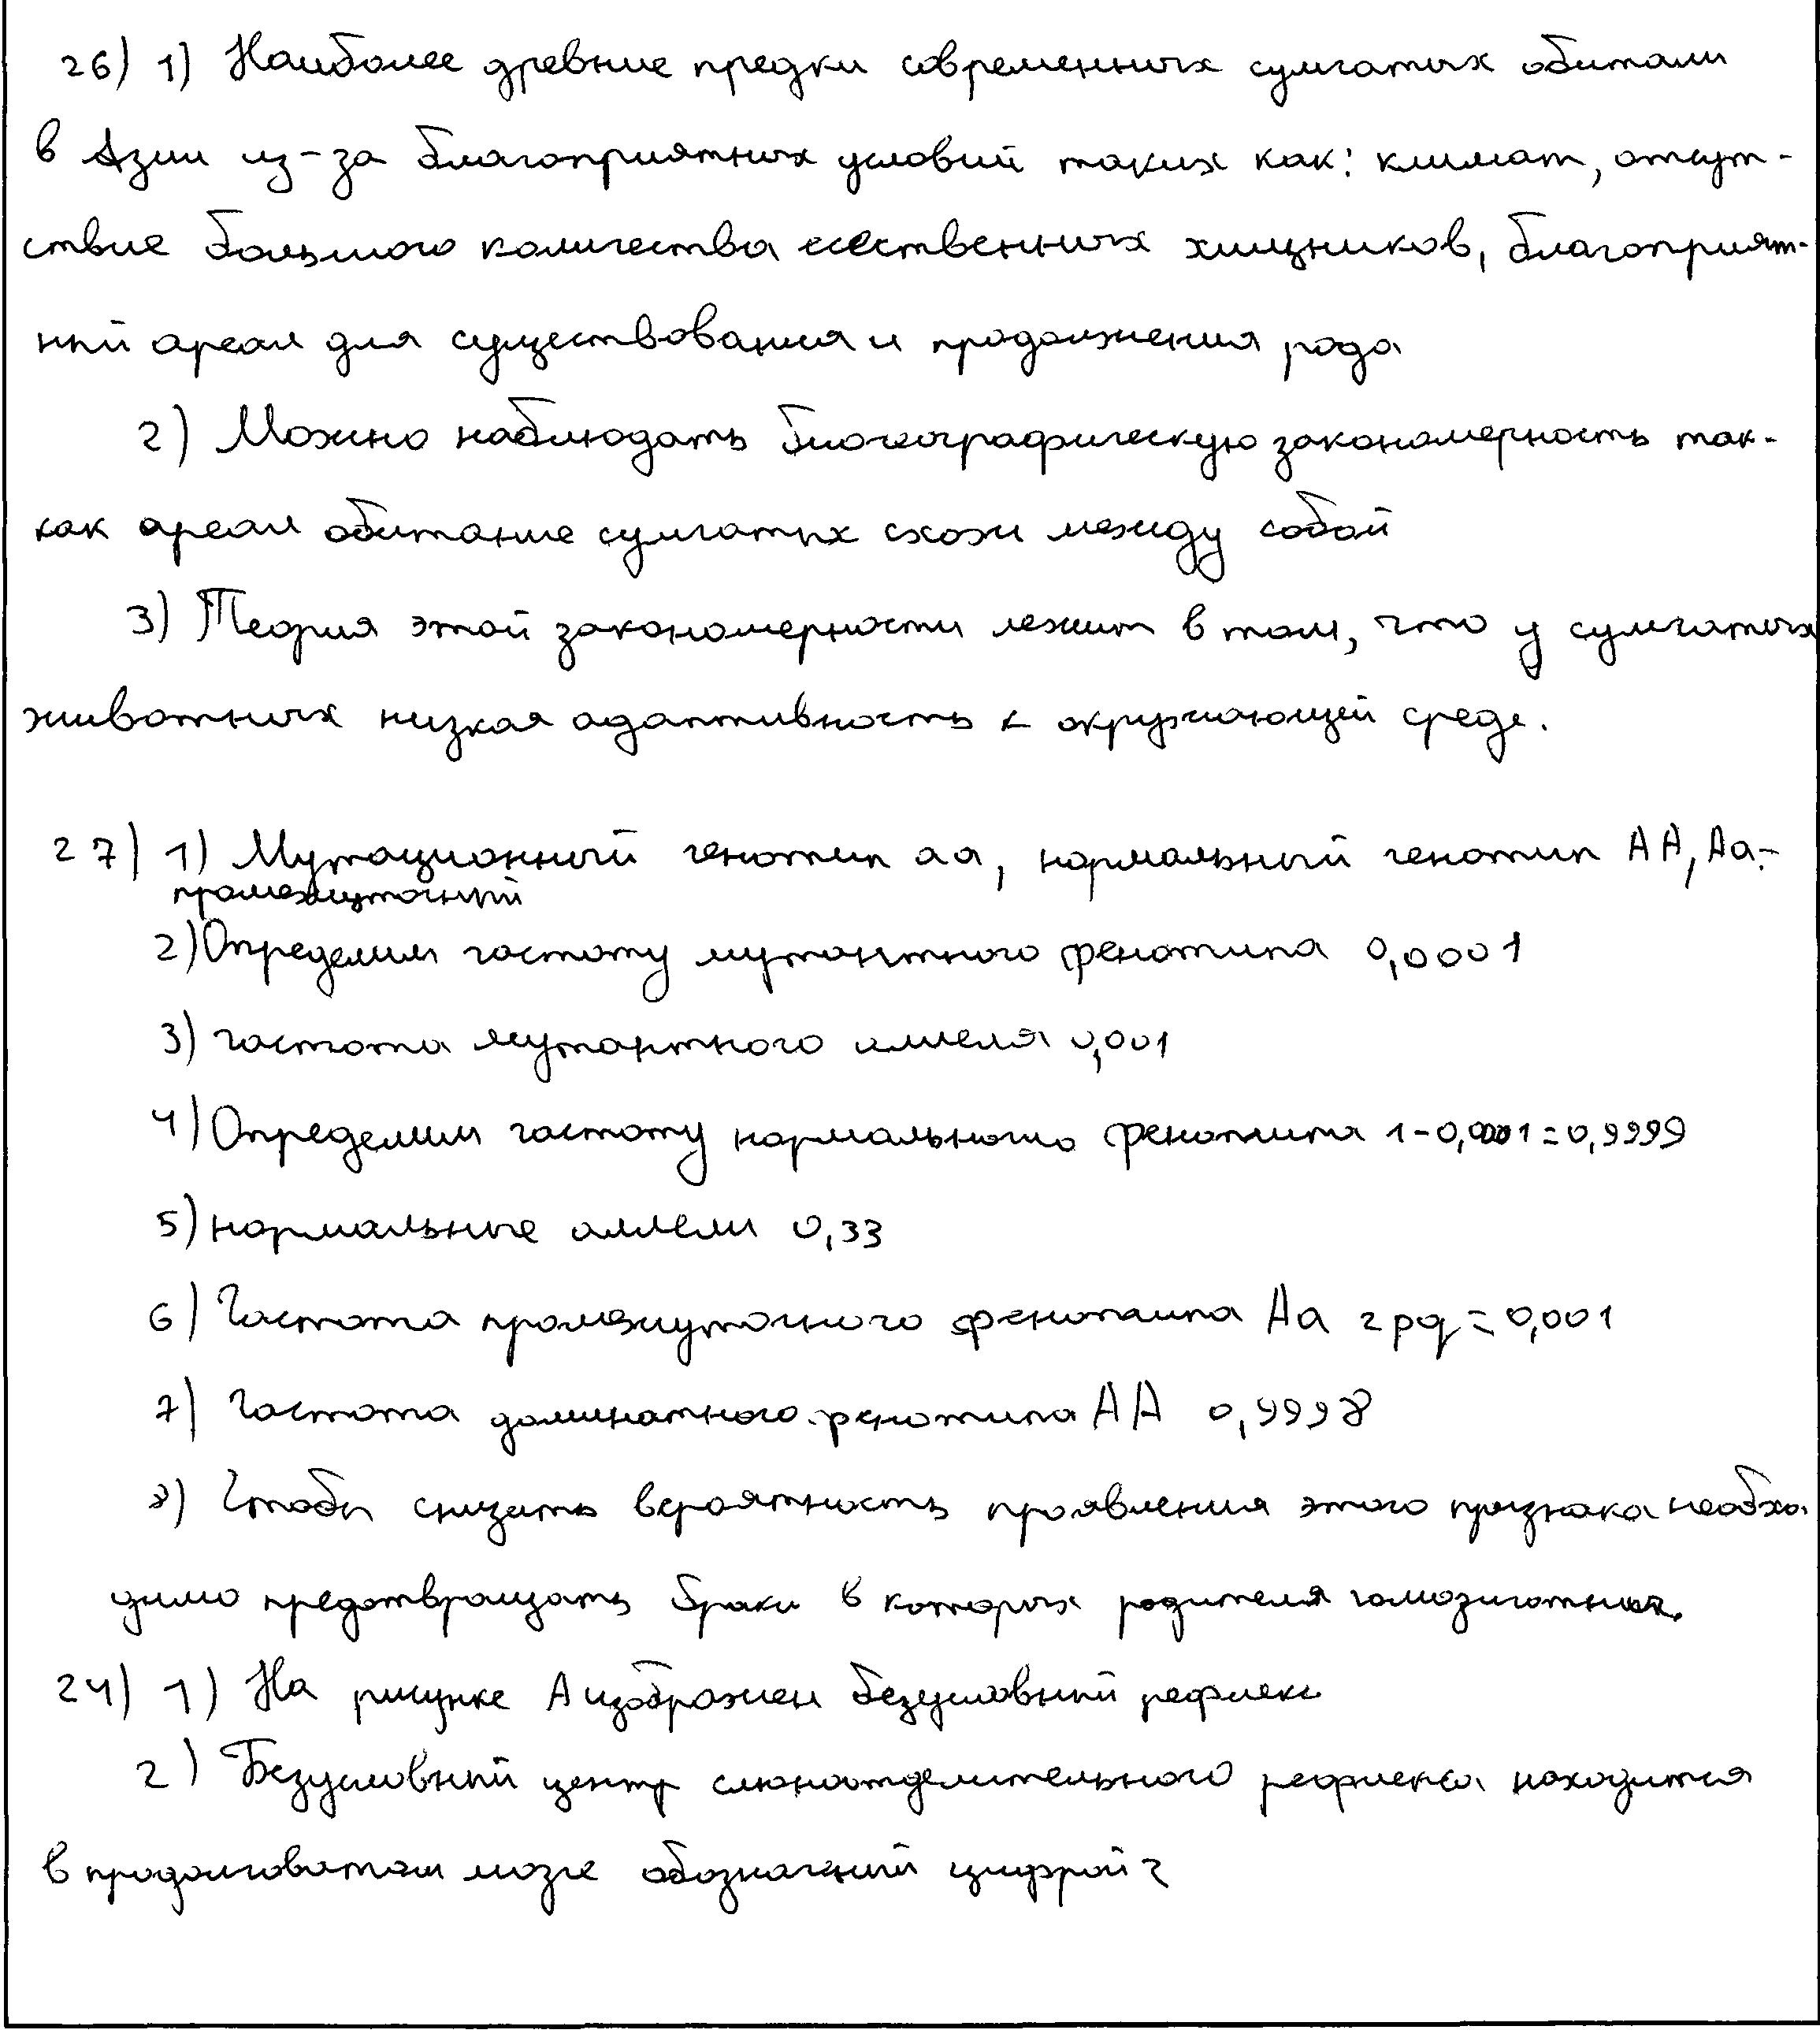 26) 1) Наиболее древние предки современных сумчатых обитали
в Азии из-за благоприятных условий таких как: климат, отсут-
ствие большого количества естественных хищников, благоприят-
ный ареал для существования и продолжения рода
2) Можно наблюдать биогеографическую закономерность так-
как ареал обитание сумчатых схожи между собой
3) Теория этой закономерности лежит в том, что у сумчатых
животных низкая адаптивность к окружающей среде.
27) 1) Мутационный генотип аа, нормальный генотип АА, Аа-
промежуточный
2) Определим частоту мутантного фенотипа 0,0001
3) частота мутантного аллеля 0,001
4) Определим частоту нормального фенотипа 1-0,0001=0,9999
5) нормальные аллели 0,33
6) Частота промежуточного фенотипа Аа 2pq=0,001
7) Частота доминатного фенотипа АА 0,9998
8) Чтобы снизать вероятность проявления этого признака необхо
димо предотвращать браки в которых родителя гомозиготных.
24) 1) На рисунке А изображен безусловный рефлекс
2) Безусловный центр слюноотделительного рефлекса находится
в продолговатом мозге обозначений цифрой 2